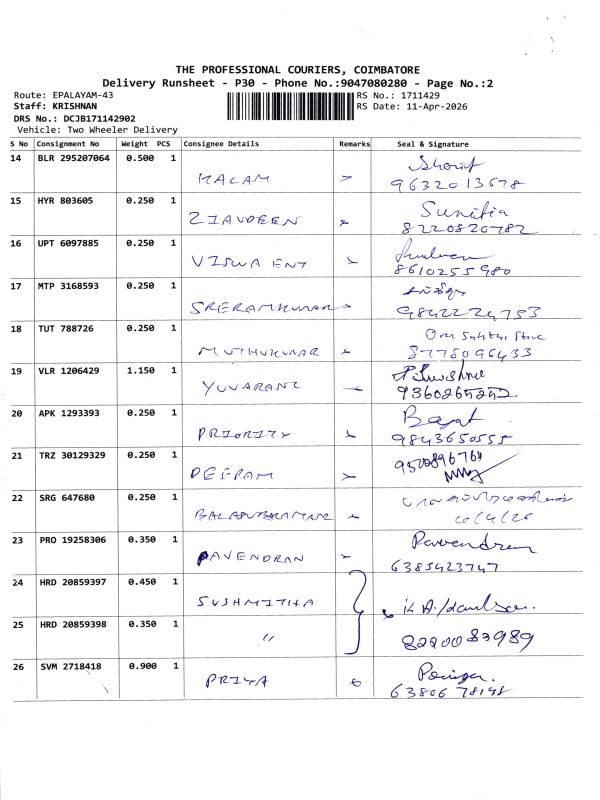 THE PROFESSIONAL COURIERS, COIMBATORE
Delivery Runsheet - P30 - Phone No.:9047080280 - Page No.:2
Route: EPALAYAM-43
RS No.: 1711429
Staff: KRISHNAN
RS Date: 11-Apr-2026
DRS No.: DCJB171142902
Vehicle: Two Wheeler Delivery
S No Consignment No Weight PCS Consignee Details Remarks Seal & Signature
14 BLR 295207064 0.500 1
KALAM
9632013678
15 HYR 803605 0.250 1 Sunitia
ZIAVDEEN 8220820782
16 UPT 6097885 0.250 1
VISWA ENT 8610255980
17 MTP 3168593 0.250 1
SREERAMKUMAR 9842224753
18 TUT 788726 0.250 1
MUTHUKUMAR 8778096433
19 VLR 1206429 1.150 1
YUVARANI 9360265252
20 APK 1293393 0.250 1
PRIORITY 9843650555
21 TRZ 30129329 0.250 1
DEEPAM
22 SRG 647680 0.250 1
BALASUBRAMANI
23 PRO 19258306 0.350 1 Pavendran
PAVENDRAN 6385423747
24 HRD 20859397 0.450 1
SUSHMITHA
25 HRD 20859398 0.350 1
" 8220083989
26 SVM 2718418 0.900 1
PRIYA 63806 78198